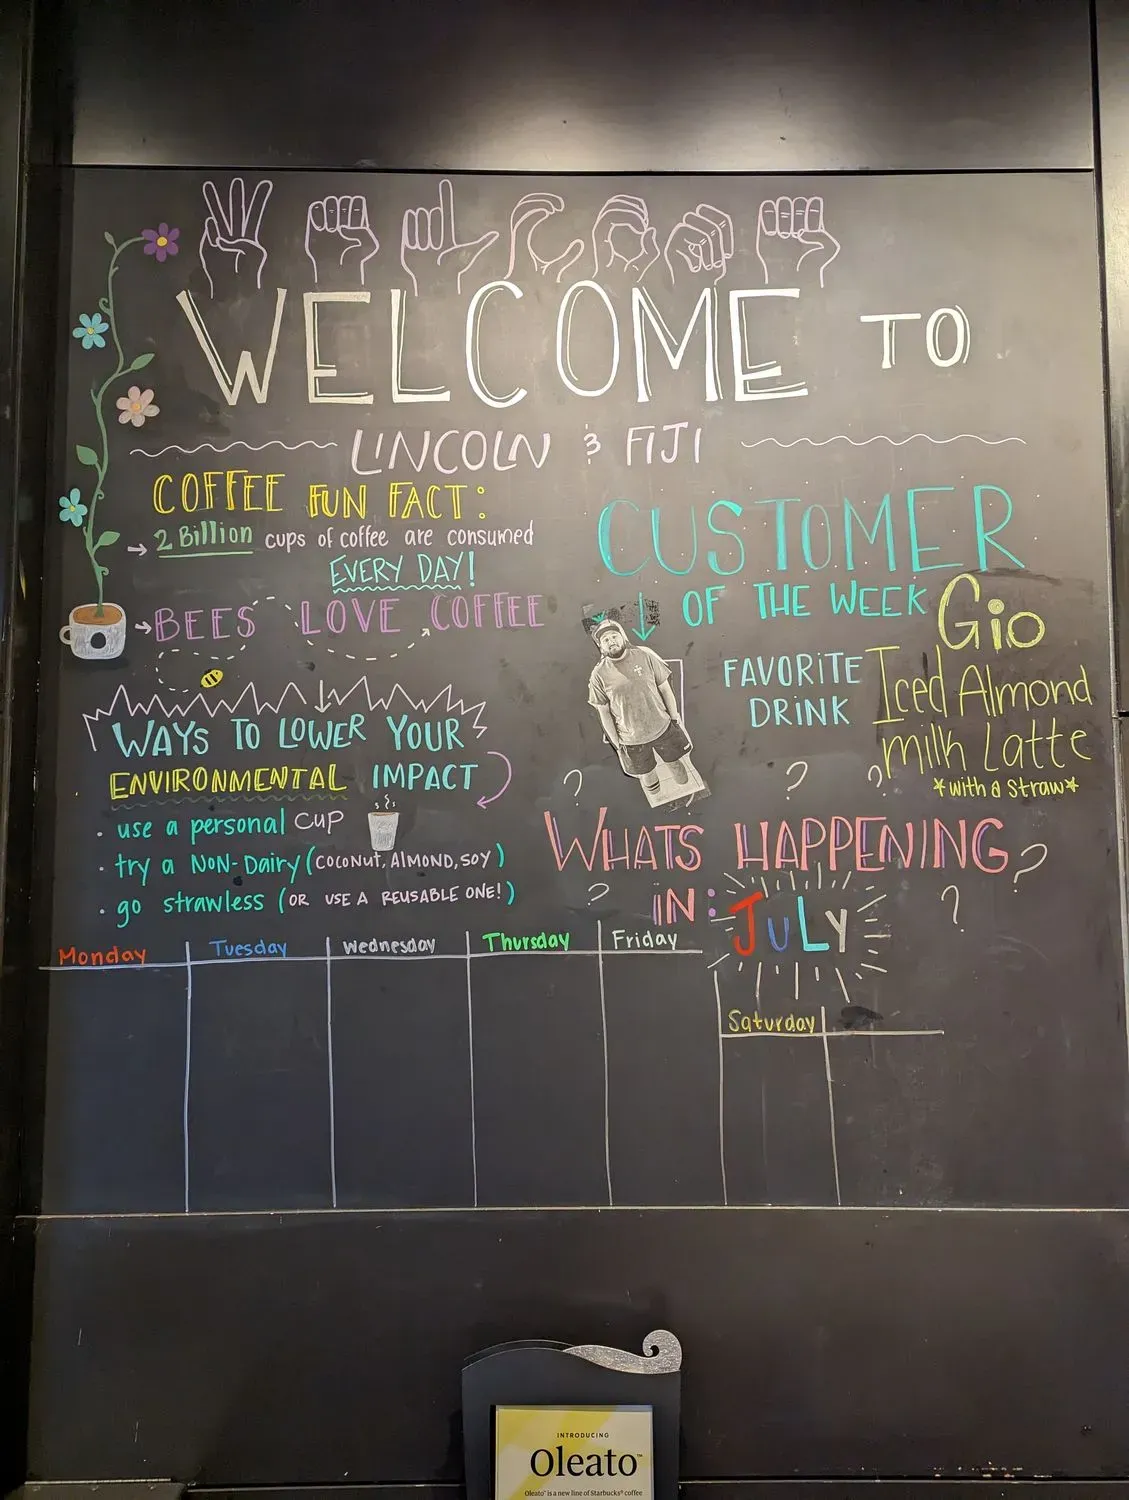 WELCOME TO
LINCOLN & FIJI
COFFEE FUN FACT:
→ 2 Billion cups of coffee are consumed
EVERY DAY!
→ BEES LOVE COFFEE
WAYS TO LOWER YOUR
ENVIRONMENTAL IMPACT
• use a personal CUP
• try a NON-Dairy (COCONUT, ALMOND, SOY)
• go strawless (OR USE A REUSABLE ONE!)
CUSTOMER
OF THE WEEK
Gio
FAVORITE
DRINK
Iced Almond
milk Latte
*with a straw*
? ? ?
WHATS HAPPENING
IN: JULY
? ? ?
Monday Tuesday Wednesday Thursday Friday
Saturday
INTRODUCING
Oleato™
Oleato™ is a new line of Starbucks® coffee